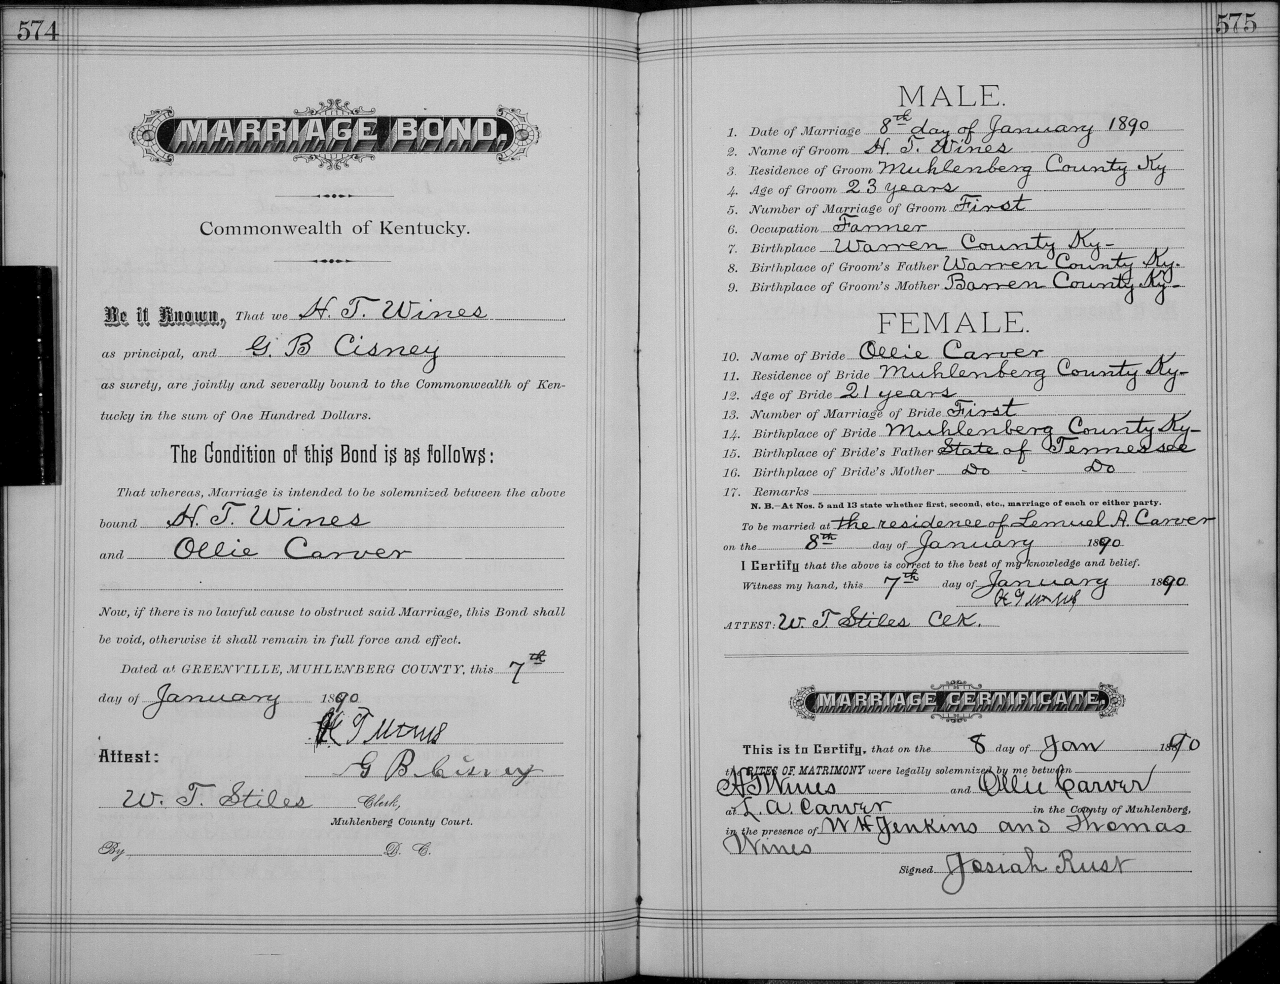 574
MARRIAGE BOND.
Commonwealth of Kentucky.
Be it Known, That we H. T. Wines
as principal, and G. B Cisney
as surety, are jointly and severally bound to the Commonwealth of Ken-
tucky in the sum of One Hundred Dollars.
The Condition of this Bond is as follows:
That whereas, Marriage is intended to be solemnized between the above
bound H. T. Wines
and Ollie Carver
Now, if there is no lawful cause to obstruct said Marriage, this Bond shall
be void, otherwise it shall remain in full force and effect.
Dated at GREENVILLE, MUHLENBERG COUNTY, this 7th
day of January 1890
H T Wines
Attest:
G B Cisney
W. T. Stiles Clerk,
Muhlenberg County Court.
By D. C.
575
MALE.
1. Date of Marriage 8th day of January 1890
2. Name of Groom H. T. Wines
3. Residence of Groom Muhlenberg County Ky
4. Age of Groom 23 years
5. Number of Marriage of Groom First
6. Occupation Farmer
7. Birthplace Warren County Ky-
8. Birthplace of Groom's Father Warren County Ky.
9. Birthplace of Groom's Mother Barren County Ky-
FEMALE.
10. Name of Bride Ollie Carver
11. Residence of Bride Muhlenberg County Ky-
12. Age of Bride 21 years
13. Number of Marriage of Bride First
14. Birthplace of Bride Muhlenberg County Ky-
15. Birthplace of Bride's Father State of Tennessee
16. Birthplace of Bride's Mother Do - Do
17. Remarks
N. B.—At Nos. 5 and 13 state whether first, second, etc., marriage of each or either party.
To be married at the residence of Lemuel A. Carver
on the 8th day of January 1890
I Certify that the above is correct to the best of my knowledge and belief.
Witness my hand, this 7th day of January 1890
H T Wines
ATTEST: W. T Stiles Clk.
MARRIAGE CERTIFICATE.
This is to Certify, that on the 8 day of Jan 1890
the RITES OF MATRIMONY were legally solemnized by me between
H T Wines and Ollie Carver
at L. A. Carver in the County of Muhlenberg,
in the presence of W H Jenkins and Thomas
Wines
Signed Josiah Rust